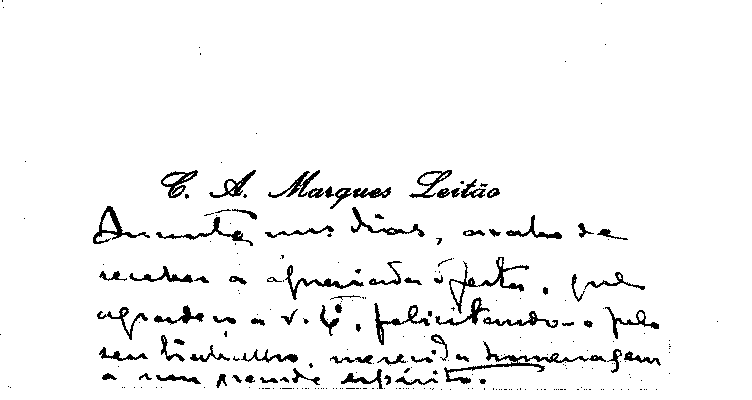 C. A. Marques Leitão
Ausente uns dias, acabo de
receber a apreciada oferta, que
agradeço a V. Eª, felicitando-o pelo
seu trabalho, merecida homenagem
a um grande espírito.